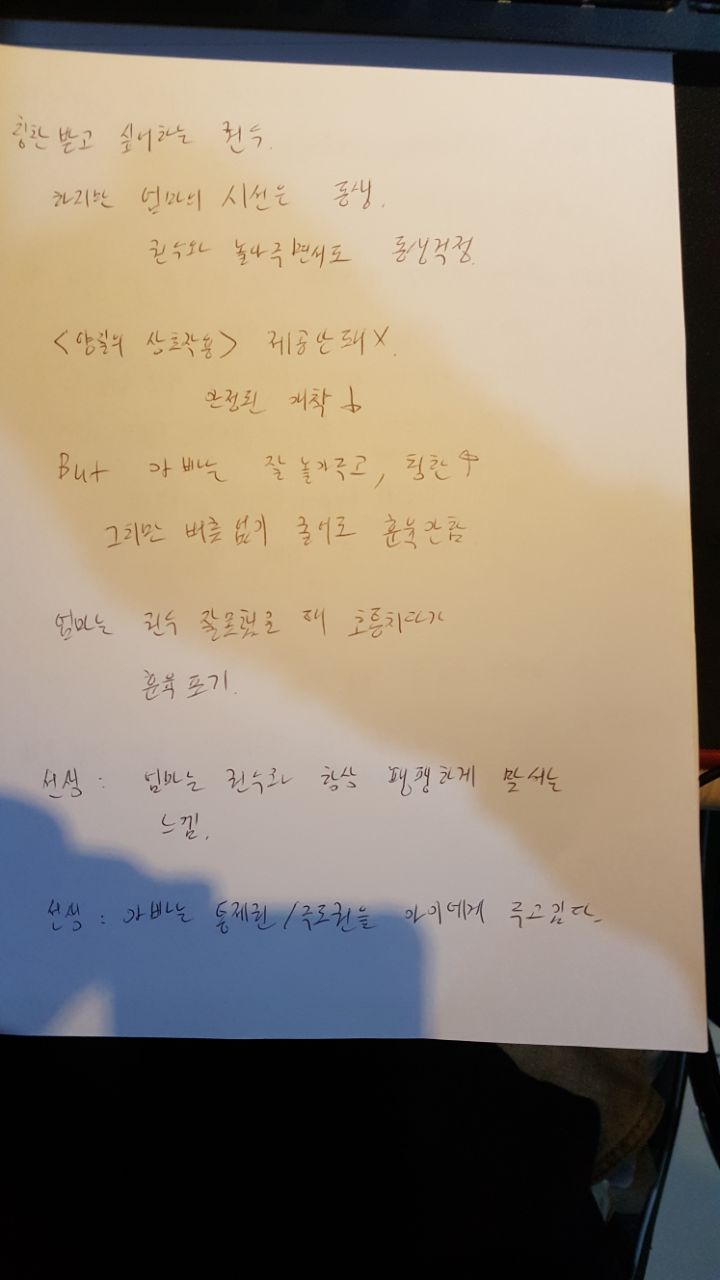 칭찬 받고 싶어하는 권수.
하지만 엄마의 시선은 동생.
권수와 놀아주면서도 동생걱정.
<양질의 상호작용> 제공안돼X.
안정된 애착↓
But 아빠는 잘 놀아주고, 칭찬↑
그치만 버릇없이 굴어도 훈육안함
엄마는 권수 잘못했을 때 호통치다가
훈육 포기.
선생 : 엄마는 권수와 항상 팽팽하게 맞서는
느낌.
선생 : 아빠는 통제권/주도권을 아이에게 주고있다.